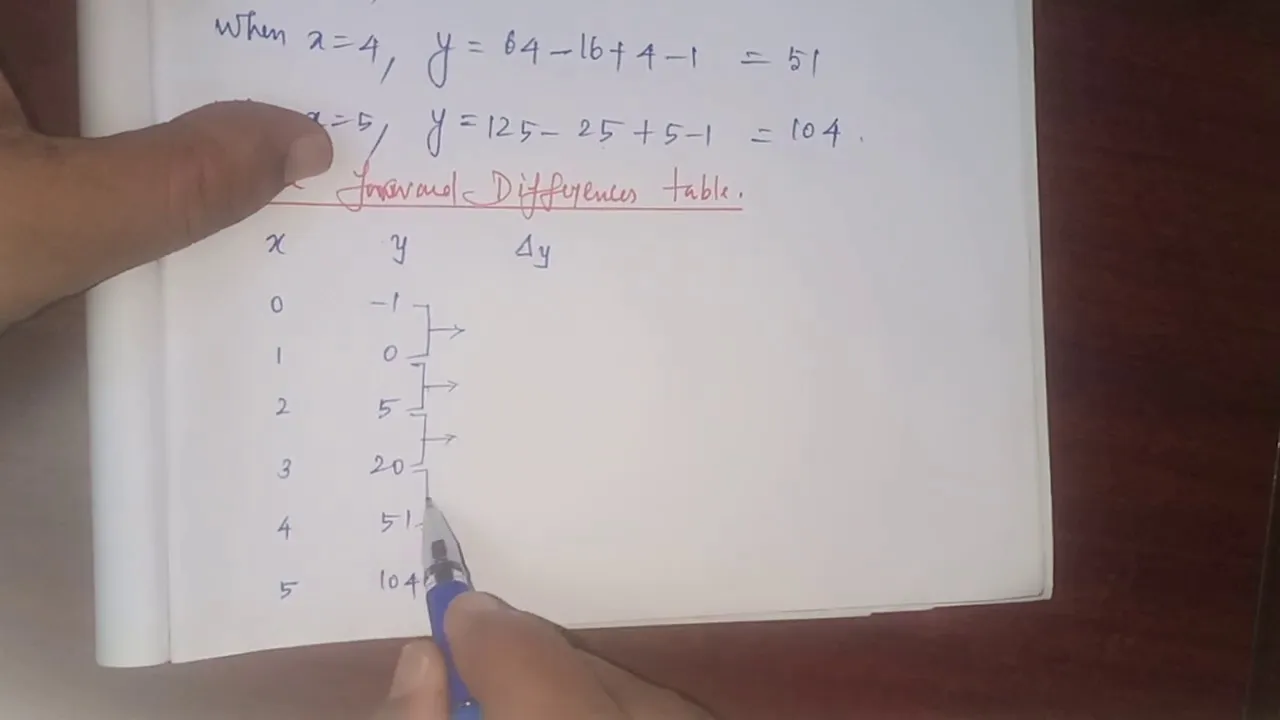 When x=4, y = 64-16+4-1 = 51
x=5, y = 125- 25 +5-1 = 104.
Forward Differences table.
x y Δy
0 -1
1 0
2 5
3 20
4 51
5 104